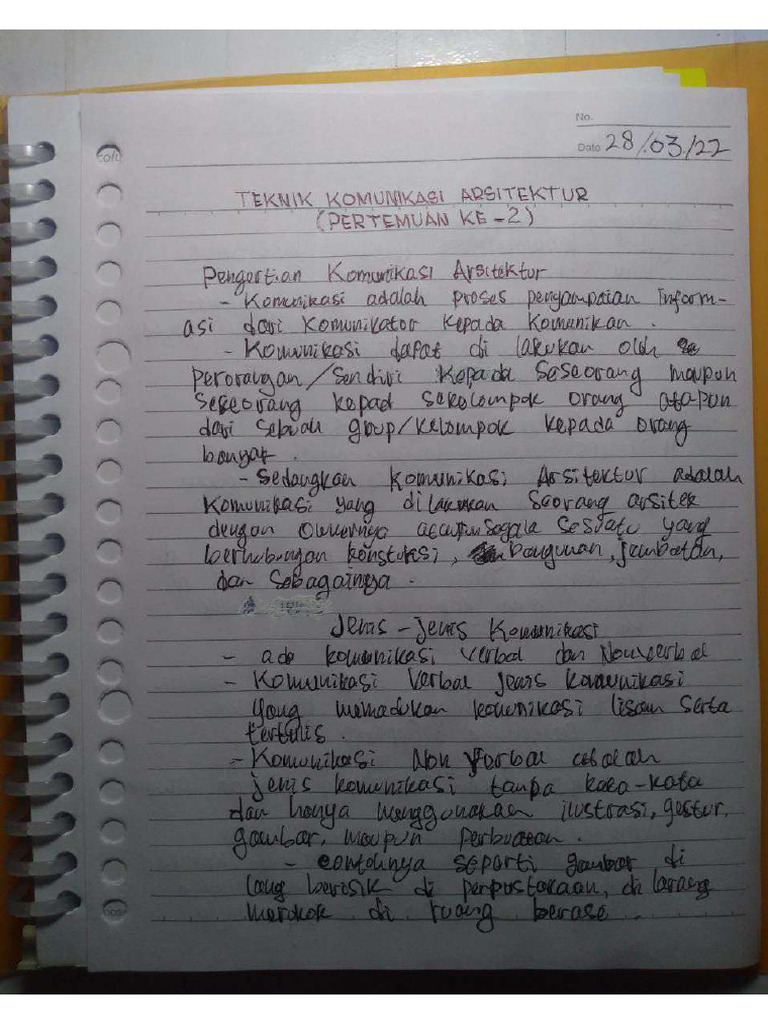 No.
Date 28/03/22
TEKNIK KOMUNIKASI ARSITEKTUR
(PERTEMUAN KE-2)
Pengertian Komunikasi Arsitektur
- Komunikasi adalah proses penyampaian Inform-
asi dari Komunikator kepada Komunikan.
- Komunikasi dapat di lakukan oleh
perorangan/sendiri kepada seseorang maupun
seseorang kepad sekelompok orang atapun
dari sebuah group/kelompok kepada orang
banyak.
- Sedangkan komunikasi Arsitektur adalah
komunikasi yang di lakukan seorang arsitek
dengan ownernya ataupun segala sesuatu yang
berhubungan konstruksi, bangunan, jembatan,
dan sebagainya.
Jenis-jenis Komunikasi
- ada komunikasi verbal dan Nonverbal
- Komunikasi Verbal jenis komunikasi
yang memadukan komunikasi lisan serta
tertulis.
- Komunikasi Non Verbal adalah
jenis komunikasi tanpa kata-kata
dan hanya menggunakan ilustrasi, gestur,
gambar, maupun perbuatan.
- contohnya seperti gambar di
lang berisik di perpustakaan, di larang
merokok di ruang berase.